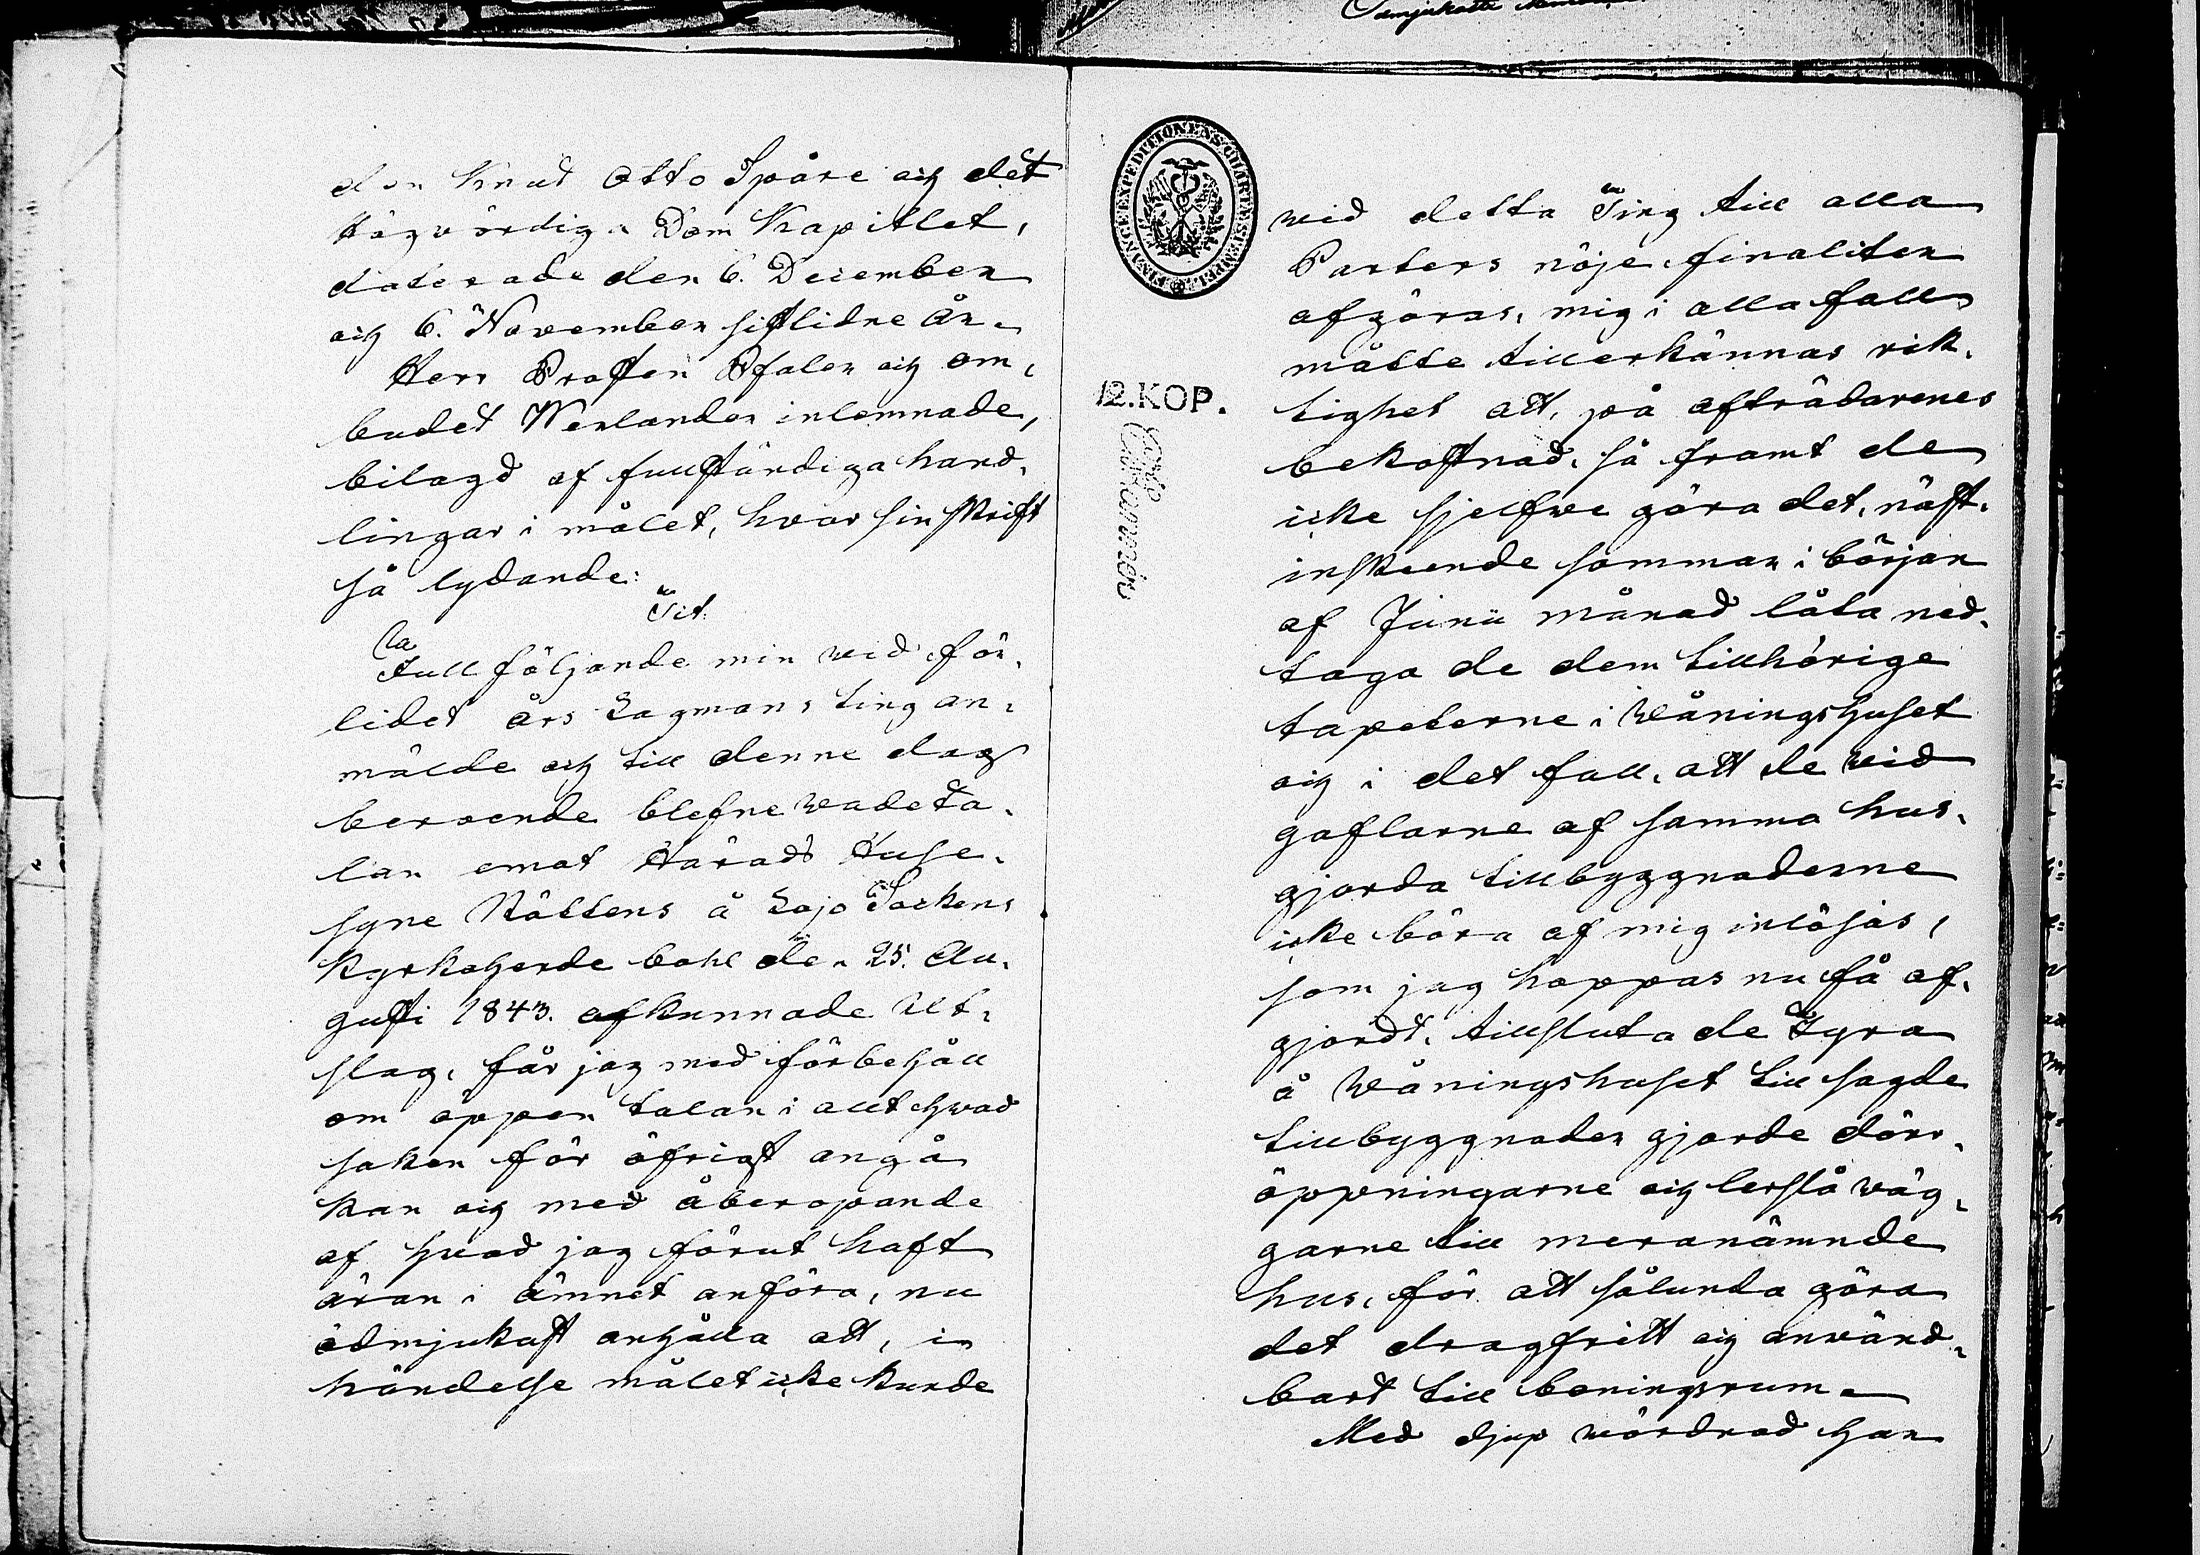 den Knut Otto Spåre och det
Högvördiga Dom Kapitlet,
daterade den 6. December
och 6. November sistlidne År.
Herr Prosten Pfaler och om-
budet Wenlander inlemnade,
bilagd af fullständiga hand-
lingar i målet, hvar sin skrift
så lydande:
Tit:
Fullföljande min wid för-
lidet års Lagmans ting an-
mälde och till denne dag
beroende blefne wadeta-
lan emot Härads Huse-
syne Rättens å Lojo Sockens
Kyrkoherde bohl den 25. Au-
gusti 1843. afkunnade Ut-
slag, får jag med förbehåll
om öppen talan i allt hwad
saken för öfrigt angå
kan och med åberopande
af hwad jag förut haft
äran i ämnet anföra, nu
ödmjukast anhålla att, i
händelse målet icke kunde
FINANCE EXPEDITIONENS CHARTÆ STEMPEL
12. KOP.
wid detta Ting till alla
Parters nöje finaliter
afgöras, mig i alla fall
måtte tillerkännas rik-
tighet att, på afträdarenes
bekostnad, så framt de
icke sjelfwe göra det, näst-
inskeende sommar i början
af Junii månad låta ned-
taga de dem tillhörige
tapeterne i Wåningshuset
och i det fall, att de wid
gaflarne af samma hus
gjorda tillbyggnaderne
icke böra af mig inlösas,
som jag hoppas nu få af-
gjordt, tillsluta de Fyra
å Wåningshuset till sagde
tillbyggnader gjorde dörr-
öppningarne och lerslå wäg-
garne till meranämnde
hus, för att sålunda göra
det dragfritt och anwänd-
bart till boningsrum.
Med djup wördnad har